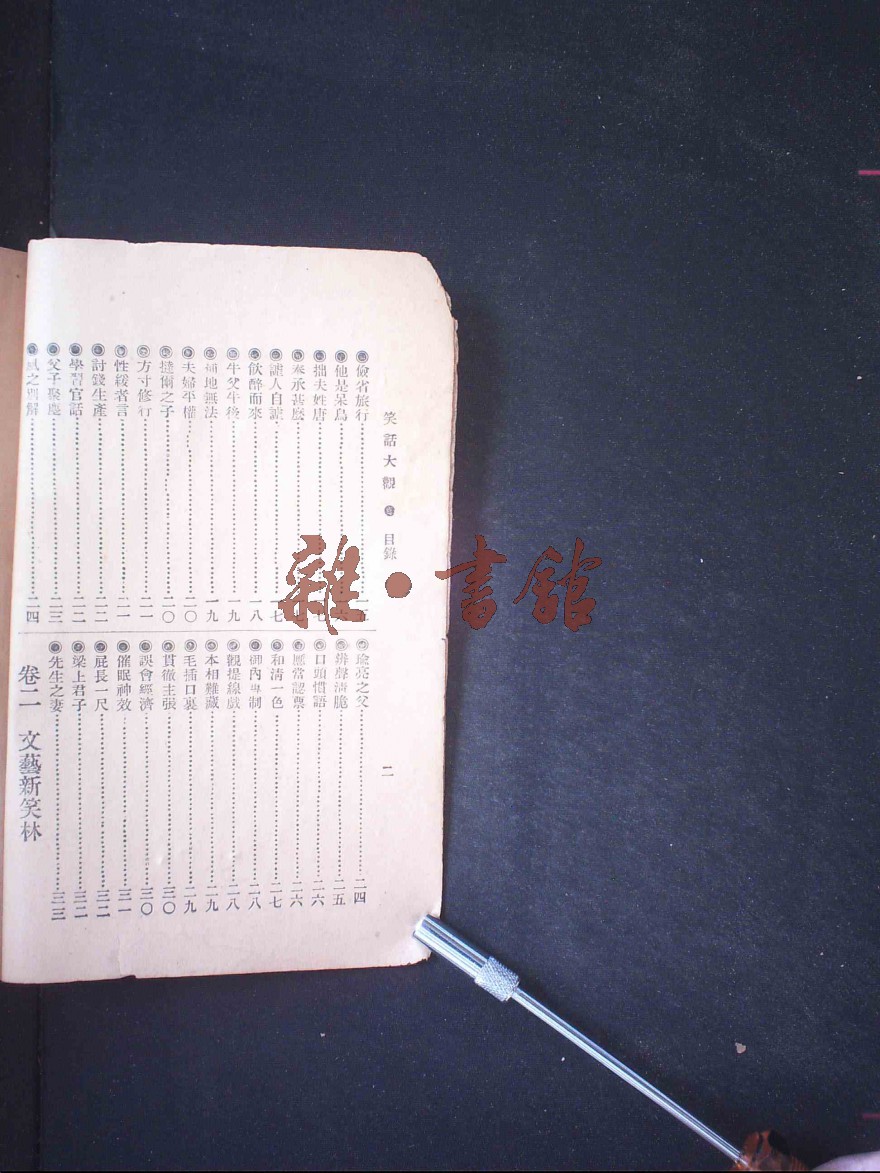 笑話大觀 目錄 二
儉省旅行
他是呆鳥
拙夫姓唐
奉承甚麽
誰人自謔
飲醉而來 一八
牛父牛後 一九
無法 一九
夫婦平權 二〇
撻爾之子 二〇
方寸修行 二一
性緩者言 二一
討錢生產 二二
學習官話 二二
父子聚麀 二三
之別解 二四
瑜亮之父 二四
辨聲清脆 二五
口頭慣語 二六
應當認票 二六
和清一色 二七
御內專制 二八
觀提線戲 二八
本相難藏 二九
毛插口裏 二九
貫徹主張 三〇
誤會經濟 三〇
催眠神效 三一
屁長一尺 三二
梁上君子 三二
先生之妻 三三
卷二 文藝新笑林
雜·書館